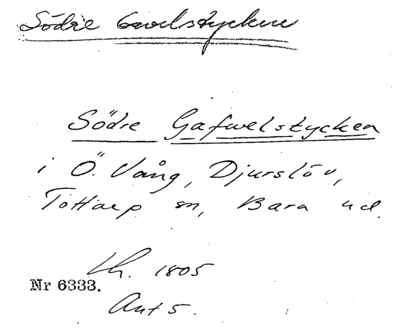 Södre Gavelstycken
Södre Gafwelstycken
i Ö. Vång, Djurslöv,
Tottarp sn, Bara hd.
Lh. 1805
Nr 6333.
Akt 5.